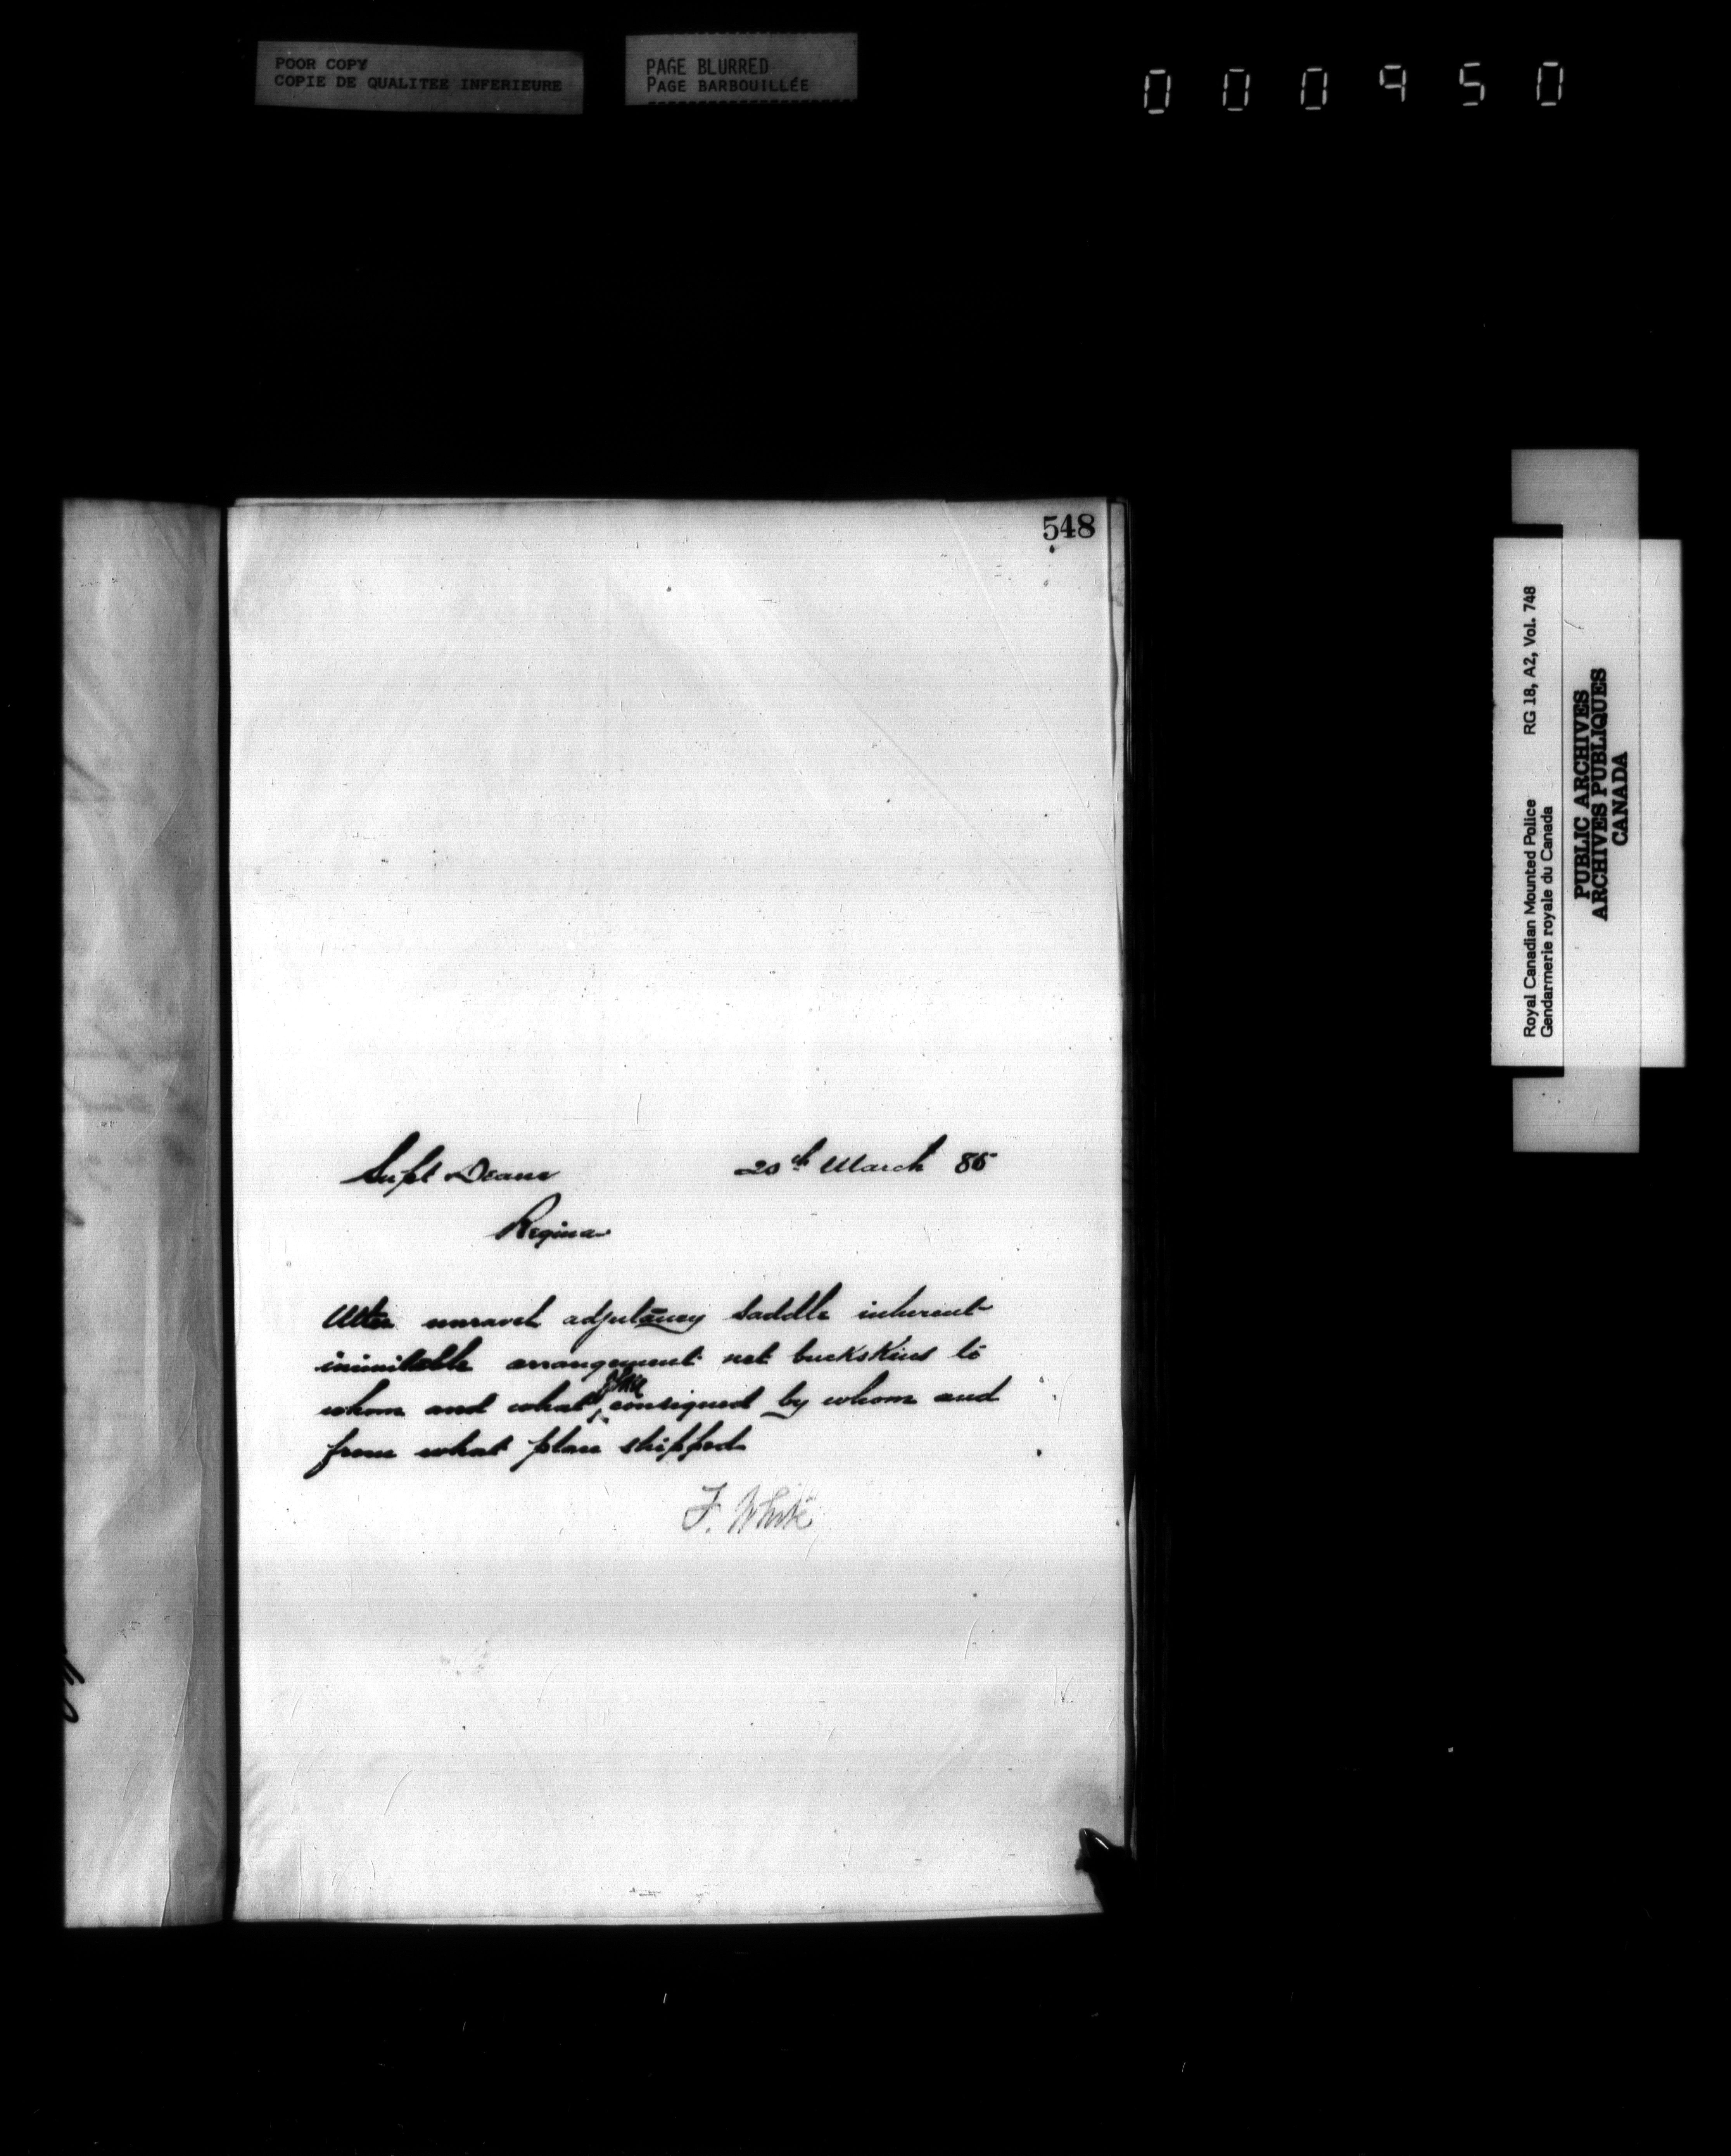 POOR COPY
COPIE DE QUALITEE INFERIEURE
PAGE BLURRED
PAGE BARBOUILLÉE
000950
548
Supt Deane 20th March 85
Regina
Utter unravel adjutancy saddle inherent
inimitable arrangement net buckskins to
whom and what place consigned by whom and
from what place shipped
F. White
Royal Canadian Mounted Police RG 18, A2, Vol. 748
Gendarmerie royale du Canada
PUBLIC ARCHIVES
ARCHIVES PUBLIQUES
CANADA